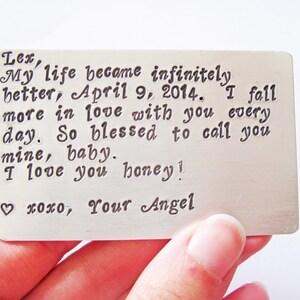 Lex,
My life became infinitely
better, April 9, 2014. I fall
more in love with you every
day. So blessed to call you
mine, baby.
I love you honey!
♡ xoxo, Your Angel